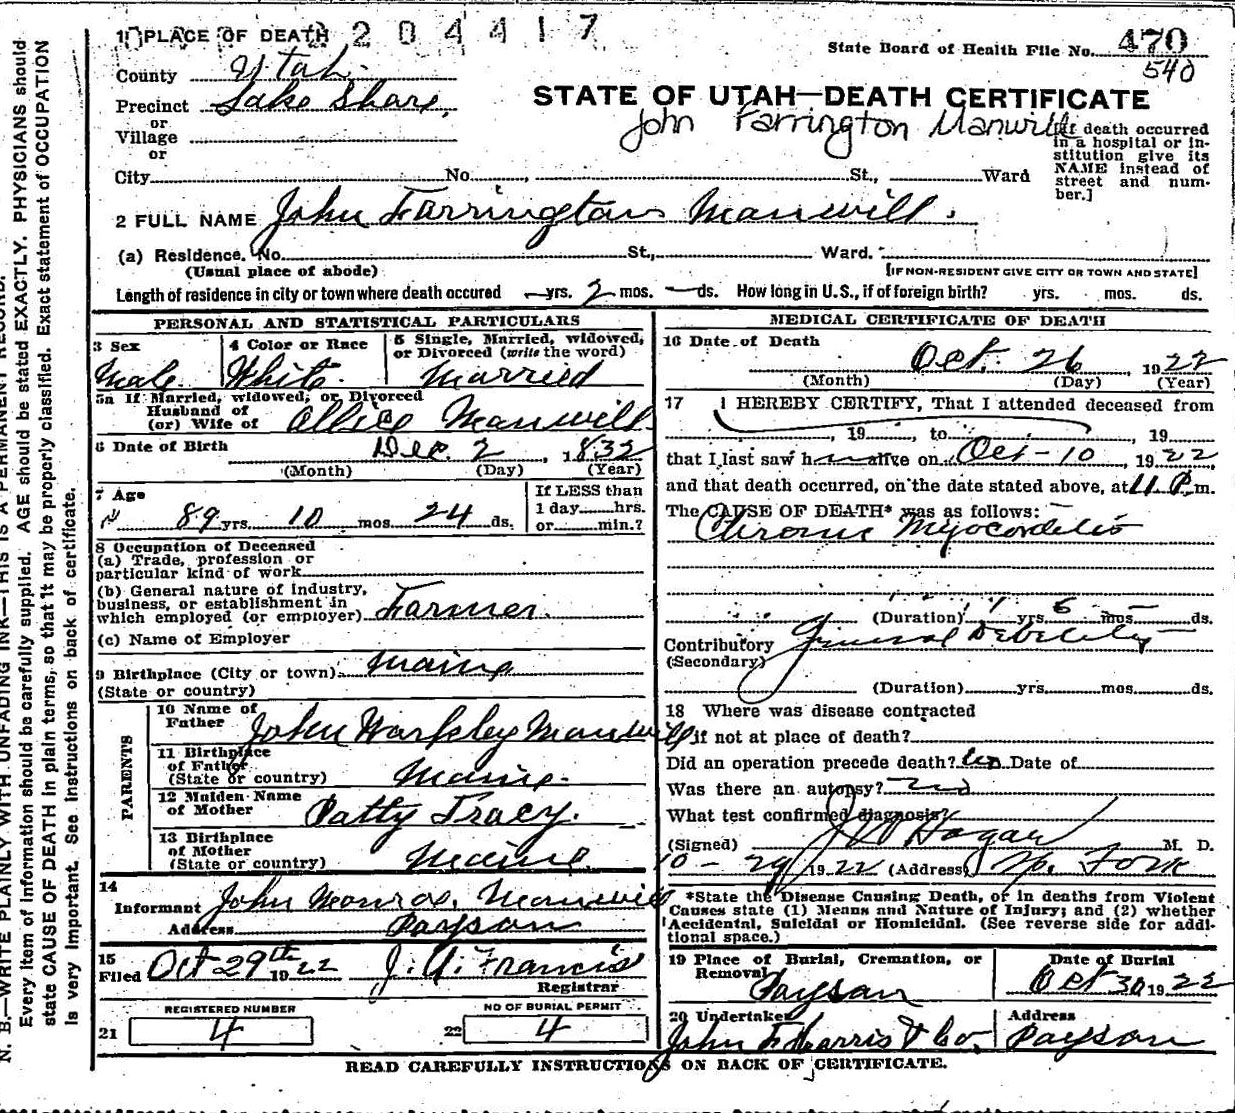 1 PLACE OF DEATH 204417
State Board of Health File No. 470
540
County Utah.
Precinct Lake Shore,
or
Village
or
City No. St., Ward
STATE OF UTAH—DEATH CERTIFICATE
John Farrington Manwill
[If death occurred in a hospital or institution give its NAME instead of street and number.]
2 FULL NAME John Farrington Manwill.
(a) Residence. No. St., Ward.
(Usual place of abode) [IF NON-RESIDENT GIVE CITY OR TOWN AND STATE]
Length of residence in city or town where death occured — yrs. 2 mos. — ds. How long in U.S., if of foreign birth? yrs. mos. ds.
PERSONAL AND STATISTICAL PARTICULARS
3 Sex
Male
4 Color or Race
White.
5 Single, Married, widowed, or Divorced (write the word)
Married
5a If Married, widowed, or Divorced
Husband of
(or) Wife of Manwill.
6 Date of Birth Dec. 2, 1832
(Month) (Day) (Year)
7 Age
89 yrs. 10 mos. 24 ds.
If LESS than
1 day hrs.
or min.?
8 Occupation of Deceased
(a) Trade, profession or
particular kind of work
(b) General nature of industry,
business, or establishment in
which employed (or employer) Farmer.
(c) Name of Employer
9 Birthplace (City or town) Maine
(State or country)
PARENTS
10 Name of
Father John Manwill
11 Birthplace
of Father
(State or country) Maine.
12 Maiden Name
of Mother Patty Tracy.
13 Birthplace
of Mother
(State or country) Maine.
14
Informant John Monroe Manwill
Address Payson
15
Filed Oct 29th 1922 Francis
Registrar
REGISTERED NUMBER
21 4
NO OF BURIAL PERMIT
22 4
MEDICAL CERTIFICATE OF DEATH
16 Date of Death
Oct. 26, 1922
(Month) (Day) (Year)
17 I HEREBY CERTIFY, That I attended deceased from
, 19 , to , 19
that I last saw h alive on Oct-10, 1922,
and that death occurred, on the date stated above, at 11 P.m.
The CAUSE OF DEATH* was as follows:
Chronic Myocorditis
(Duration) yrs. 6 mos. — ds.
Contributory General Debility
(Secondary)
(Duration) yrs. mos. ds.
18 Where was disease contracted
if not at place of death?
Did an operation precede death? no Date of
Was there an autopsy? no
What test confirmed diagnosis?
(Signed) Hagan M. D.
10-29, 1922 (Address) Sp. Fork
*State the Disease Causing Death, or in deaths from Violent
Causes state (1) Means and Nature of Injury; and (2) whether
Accidental, Suicidal or Homicidal. (See reverse side for additional space.)
19 Place of Burial, Cremation, or
Removal
Payson
Date of Burial
Oct 30 1922
20 Undertaker
John F Harris & Co.
Address
Payson
READ CAREFULLY INSTRUCTIONS ON BACK OF CERTIFICATE.
N. B.—WRITE PLAINLY WITH UNFADING INK—THIS IS A PERMANENT RECORD.
Every item of information should be carefully supplied. AGE should be stated EXACTLY. PHYSICIANS should
state CAUSE OF DEATH in plain terms, so that it may be properly classified. Exact statement of OCCUPATION
is very important. See instructions on back of certificate.